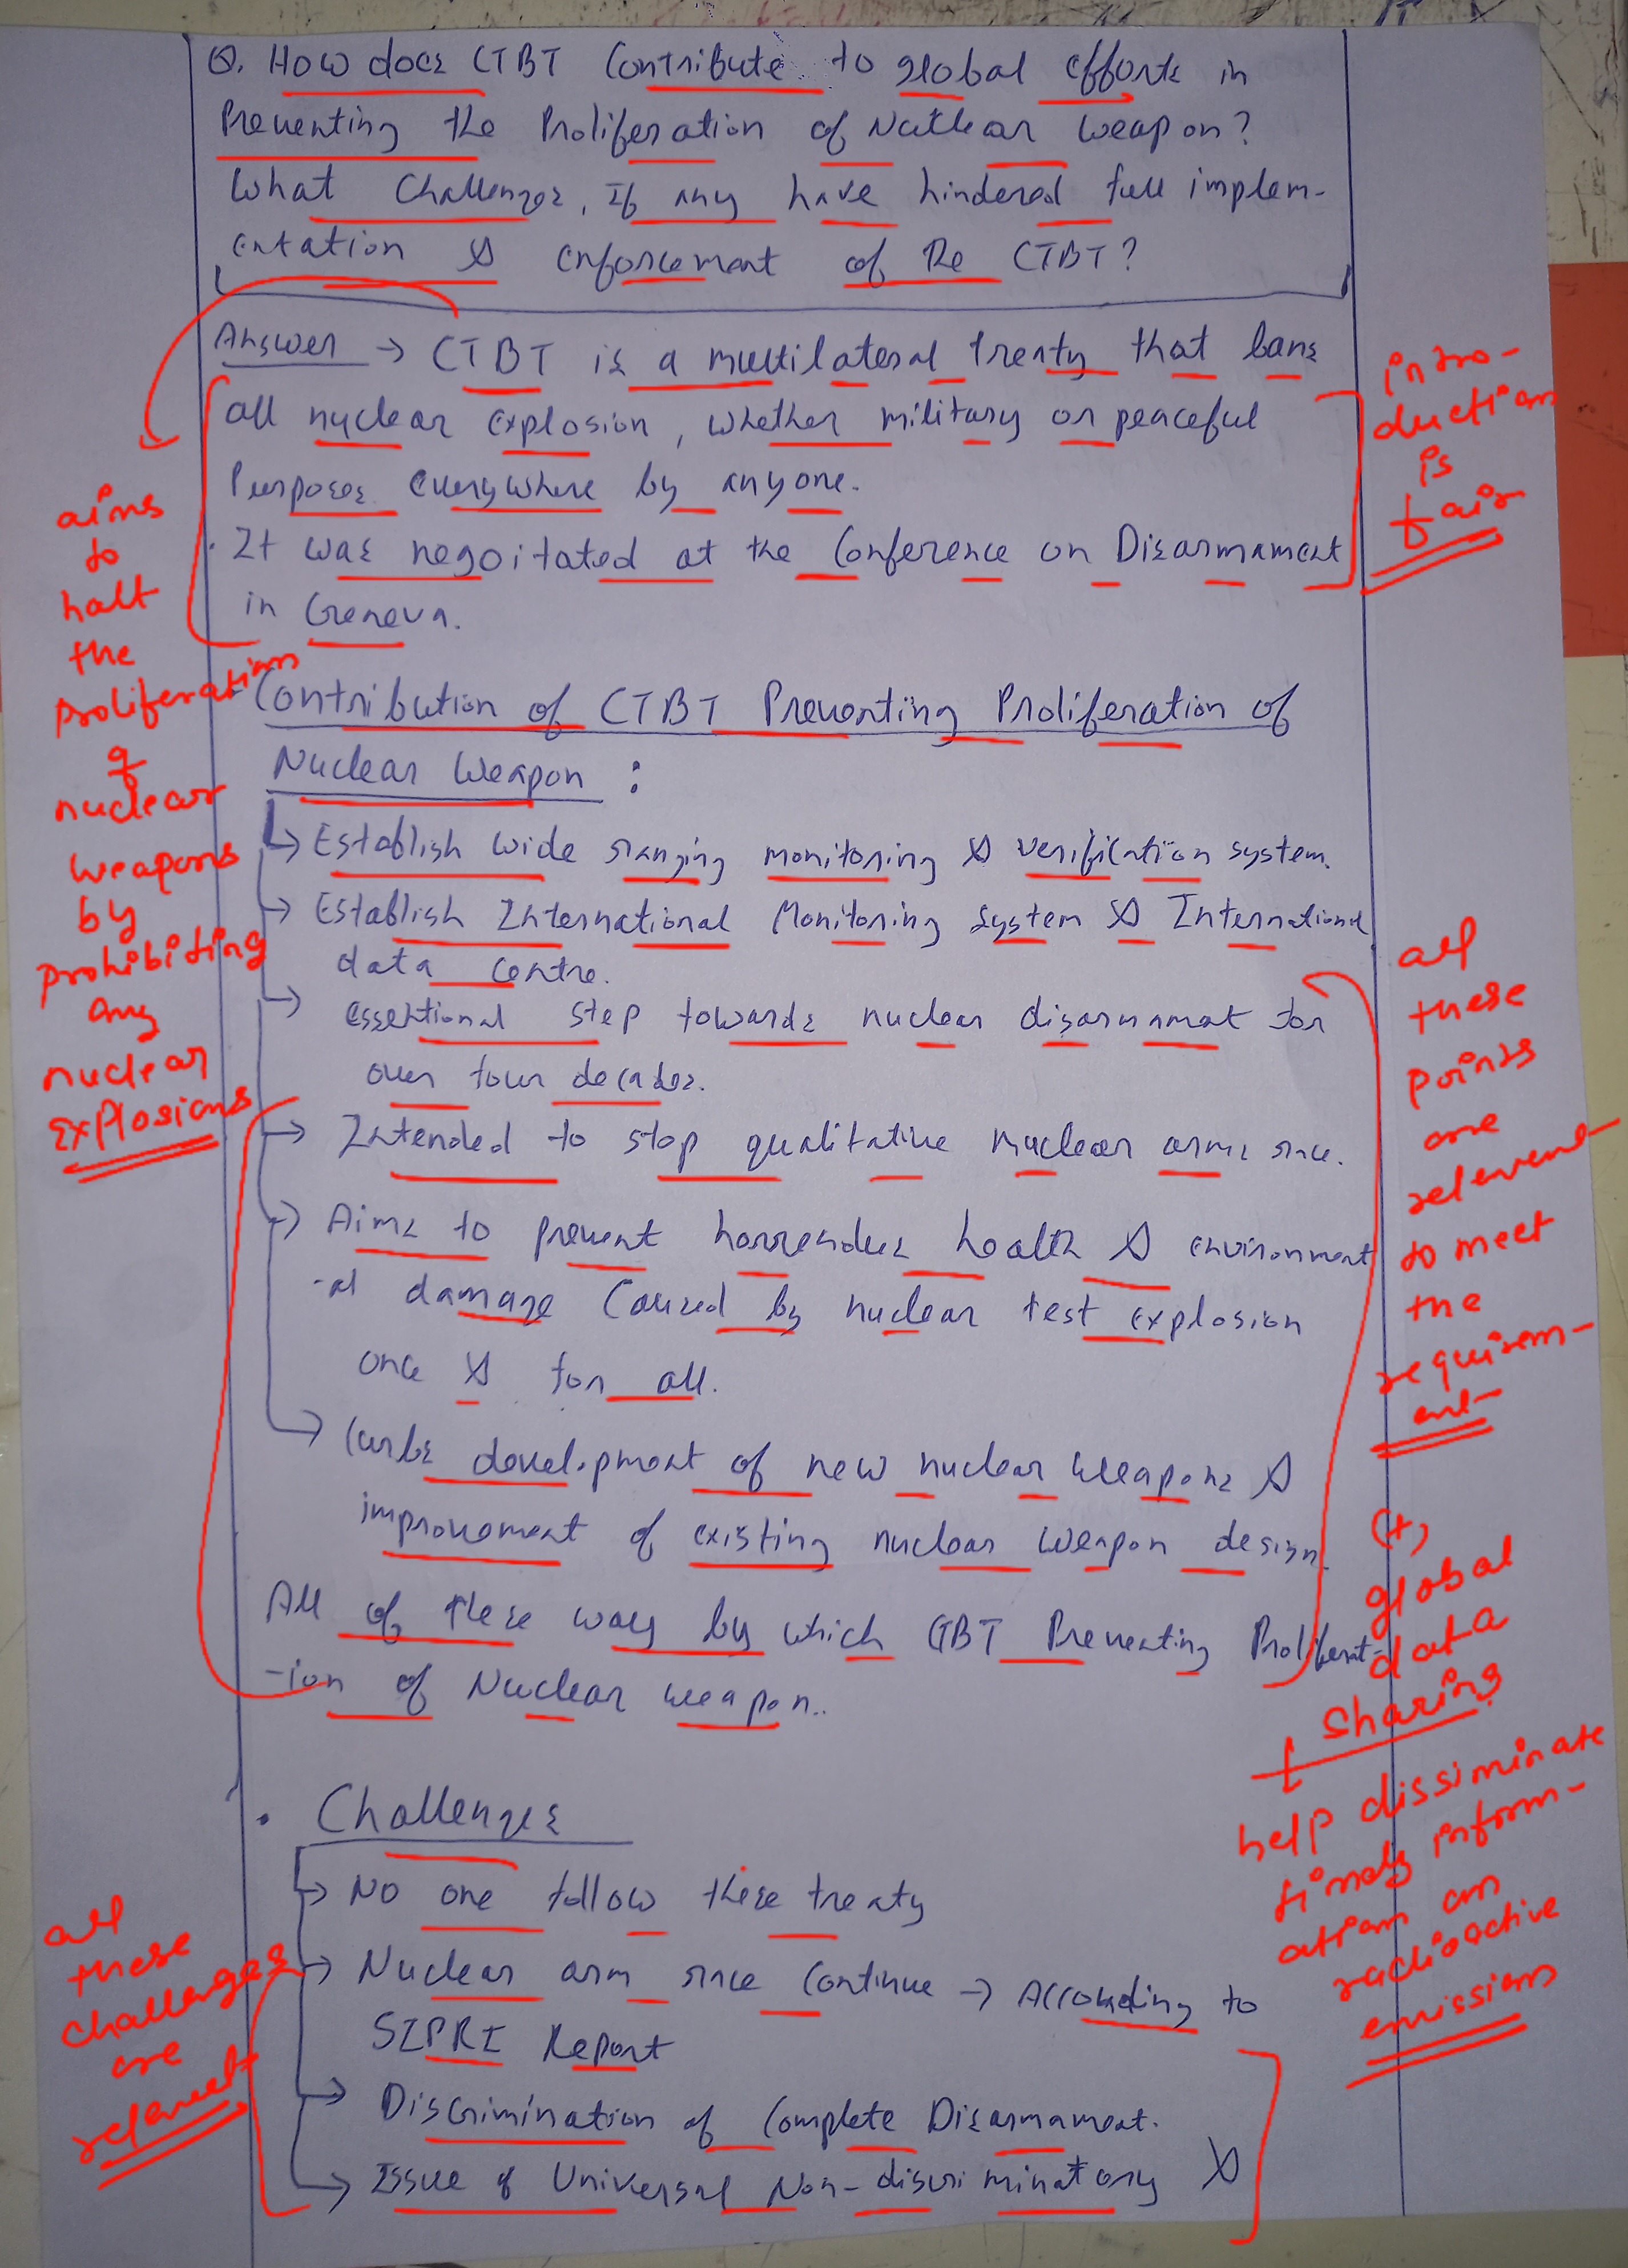 Q. How does CTBT Contribute to global efforts in
Preventing the Proliferation of Nuclear Weapon?
What Challenges, If any have hindered full implem-
entation & enforcement of the CTBT?
Answer → CTBT is a multilateral treaty that bans
all nuclear explosion, whether military or peaceful
Purposes everywhere by anyone.
· It was negoitated at the Conference on Disarmament
in Geneva.
introduction
is
fair
aims
to
halt
the
proliferation
of
nuclear
weapons
by
prohibiting
any
nuclear
explosions
Contribution of CTBT Preventing Proliferation of
Nuclear Weapon :
→ Establish wide ranging monitoring & verification system.
→ Establish International Monitoring System & International
data centre.
→ essentional step towards nuclear disarmamat for
over four decades.
→ Intended to stop qualitative nuclear arms race.
→ Aims to prevent horrendus health & environment
-al damage Caused by nuclear test explosion
once & for all.
→ Curbs development of new nuclear weapons &
improvement of existing nuclear weapon design.
All of these way by which CTBT Preventing Proliferat-
-ion of Nuclear weapon..
all
these
points
are
relevent
to meet
the
requirem-
ent
(+)
global
data
sharing
↓
help dissiminate
timely inform-
ation on
radioactive
emissions
· Challenges
→ No one follow these treaty
→ Nuclear arm race Continue → According to
SIPRI Report
→ Discrimination of Complete Disarmament.
→ Issue of Universal Non-discriminatory &
all
these
challenges
are
relevent